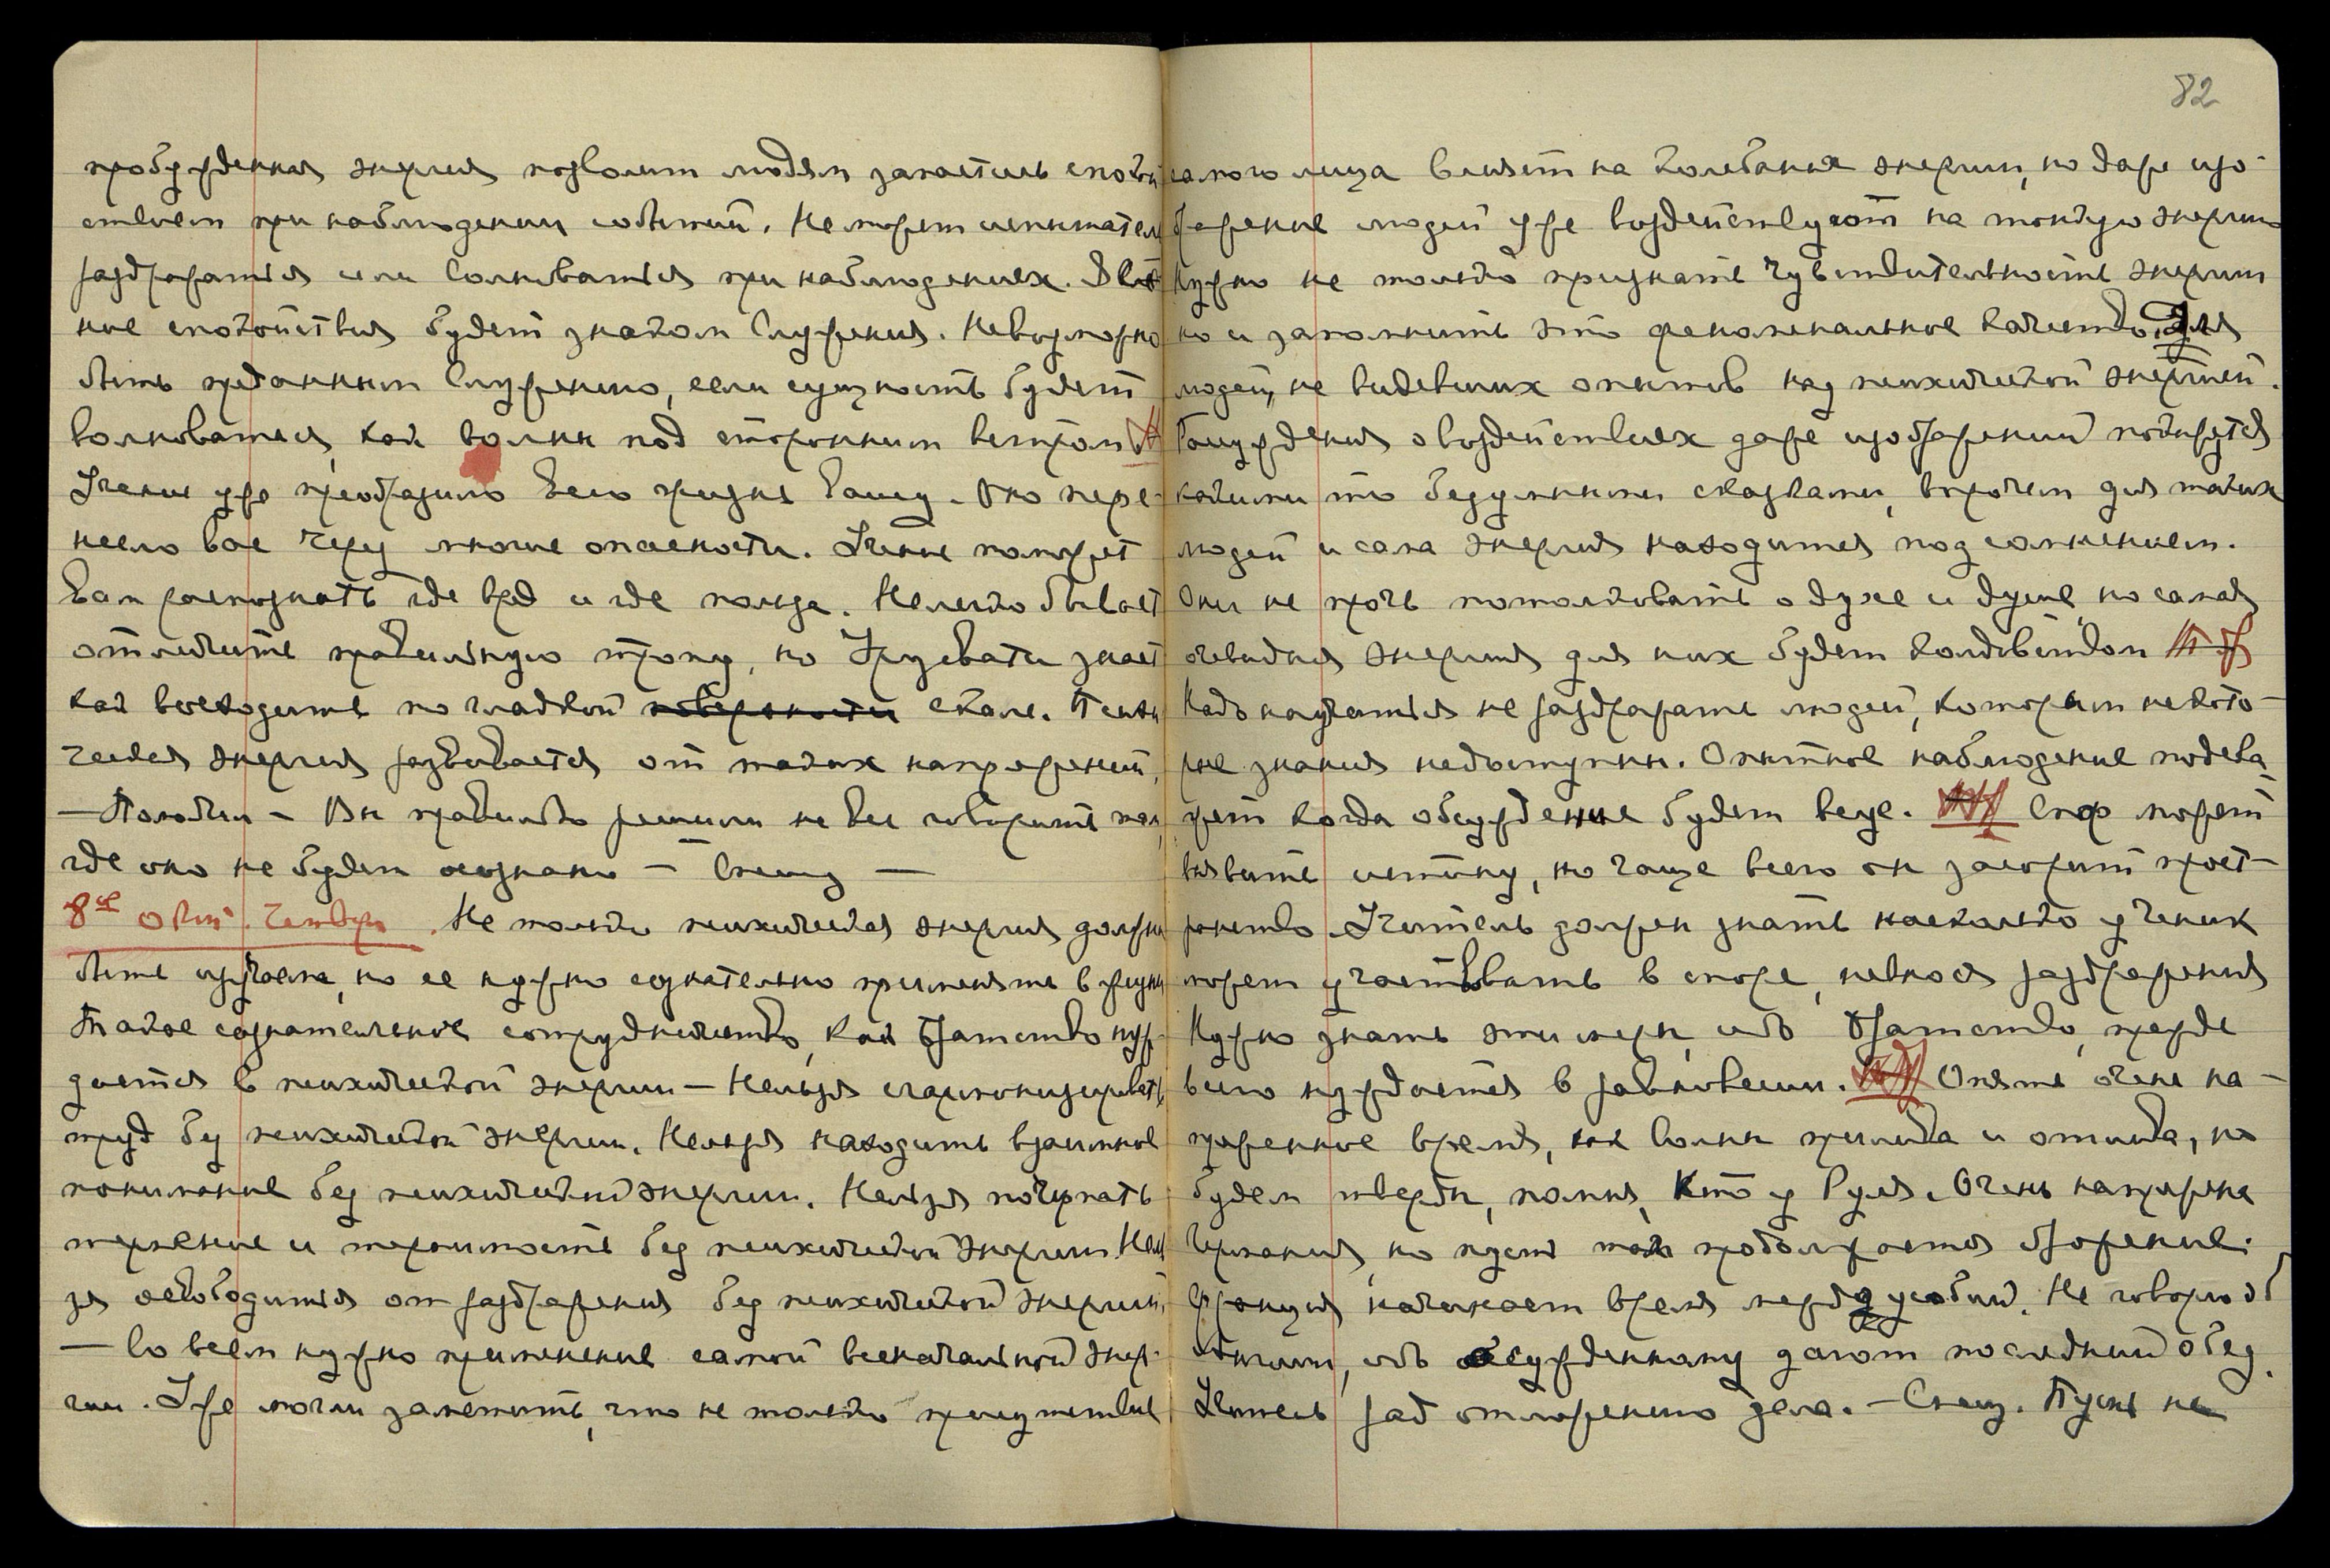 82
пробужденная энергия позволит людям запастись спокой-
ствием при наблюдении событий. Не может испытатель
раздражаться или волноваться при наблюдениях.
ное спокойствия будет знаком Служения. Невозможно
быть преданным Служению, если сущность будет
волноваться, как волны под сторонним ветром
Учение уже преобразило всю жизнь вашу. Оно пере-
несло вас через многие опасности. Учение поможет
Вам распознать где вред и где польза. Нелегко бывает
отличить правильную тропу, но Урусвати знает
как восходить по гладкой поверхности скале. Психи
ческая энергия развивается от таких напряжений,
— Полюбил — Вы правильно решили не все говорить там,
где оно не будет осознано — Спешу —
8ое Окт. Четверг. Не только психическая энергия должна
быть изучаема, но ее нужно сознательно применять в жизни
Такое сознательное сотрудничество, как Братство нуж-
дается в психической энергии — Нельзя сгармонизировать
труд без психической энергии. Нельзя находить взаимное
понимание без психической энергии. Нельзя почерпать
терпение и терпимость без психической энергии. Нель
зя освободиться от раздражения без психической энергии,
— Во всем нужно применение самой всеначальной энер-
гии. Уже могли заметить, что не только присутствие
самого лица влияет на колебания энергии, но даже изо-
бражение людей уже воздействуют на тонкую энергию
Нужно не только признать чувствительность энергии
но и запомнить это феноменальное качество. Для
людей, не видевших опытов над психической энергией.
Рассуждения о воздействиях даже изображений покажутся
какими то безумными сказками, впрочем для таких
людей и сама энергия находится под сомнением.
Они не прочь потолковать о духе и душе, но самая
очевидная энергия для них будет колдовством
Надо научиться не раздражать людей, которым некото-
рые знания недоступны. Опытное наблюдение подска-
жет когда обсуждение будет всуе. Спор может
выявить истину, но чаще всего он засорит прост-
ранство. Учитель должен знать насколько ученик
может участвовать в споре, невнося раздражения
Нужно знать эти меры, ибо Братство, прежде
всего нуждается в равновесии. Опять очень на-
пряженное время, как волны прилива и отлива, но
будем тверды, помня, Кто у Руля. Очень напряжена
Германия, но пусть там продолжается брожение.
Франция начинает время междуусобий. Не говорю об
Англии, ибо осужденному дают последний обед.
Учитель рад отложению дела. — Спешу. Пусть не